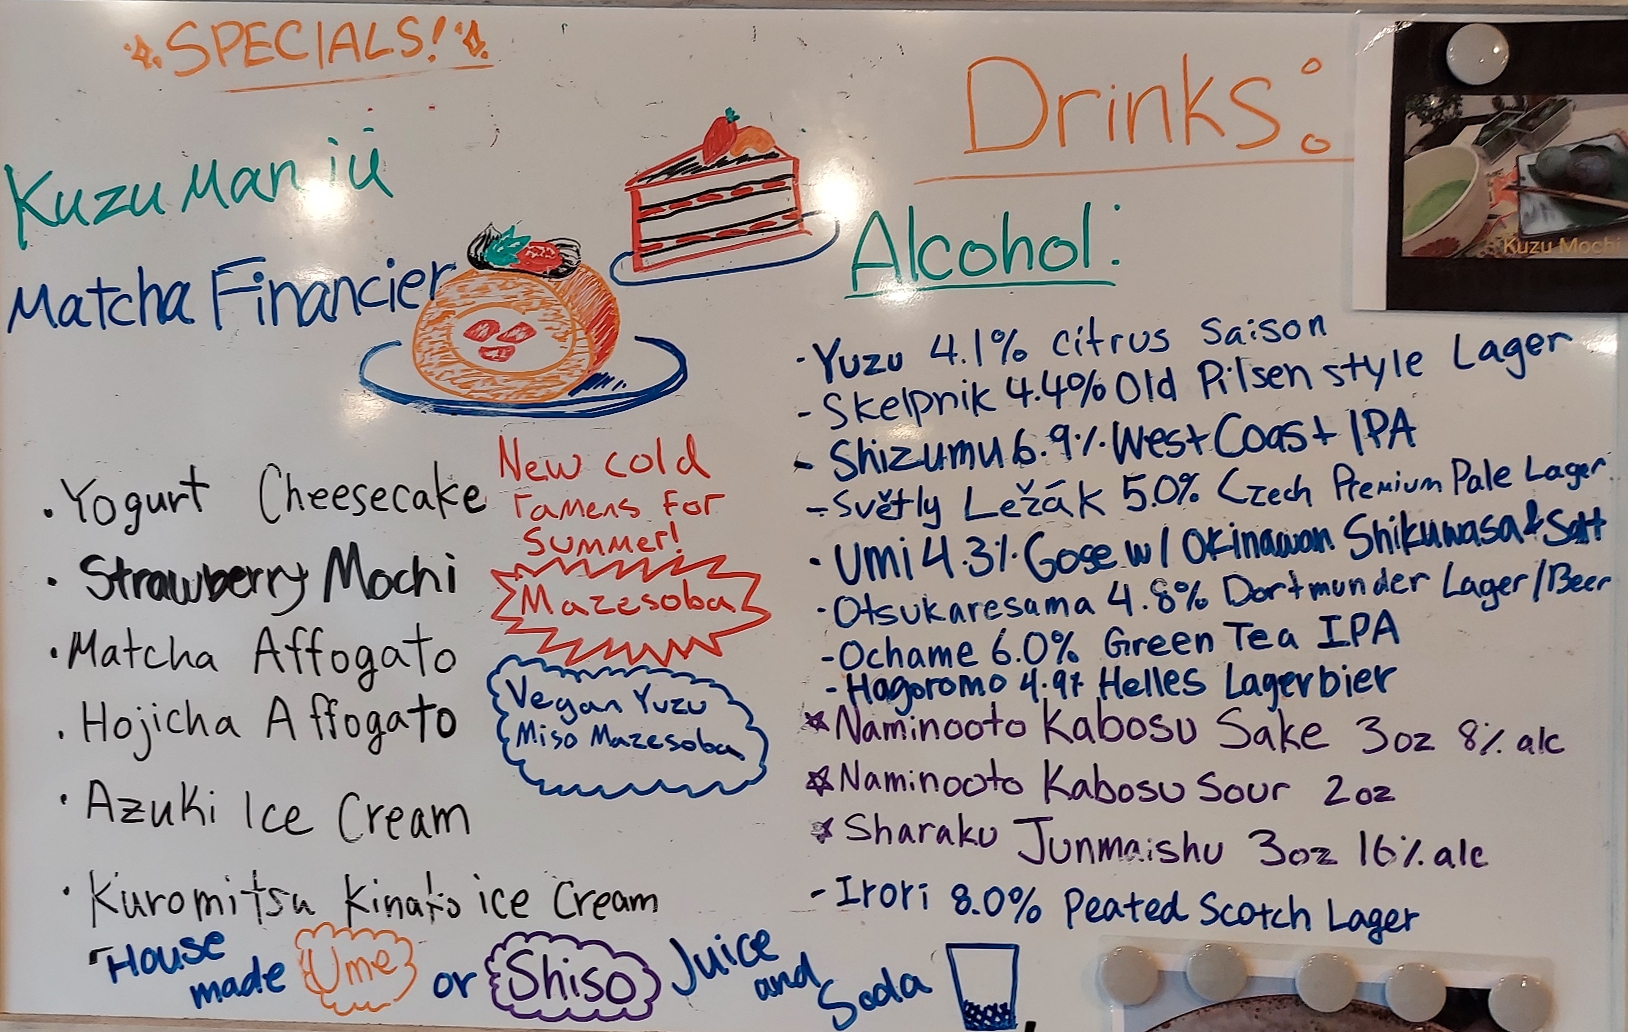 SPECIALS!
Kuzu Manjū
Matcha Financier
· Yogurt Cheesecake
· Strawberry Mochi
· Matcha Affogato
· Hojicha Affogato
· Azuki Ice Cream
· Kuromitsu Kinako ice Cream
New cold
ramens for
Summer!
Mazesoba
Vegan Yuzu
Miso Mazesoba
House made Ume or Shiso Juice and Soda
Drinks:
Alcohol:
- Yuzu 4.1% citrus Saison
- Skelpnik 4.4% Old Pilsen style Lager
- Shizumu 6.9% West Coast IPA
- Světly Ležāk 5.0% Czech Premium Pale Lager
· Umi 4.3% Gose w/ Okinawan Shikuwasa & Salt
· Otsukaresama 4.8% Dortmunder Lager/Beer
- Ochame 6.0% Green Tea IPA
- Hagoromo 4.9% Helles Lagerbier
☆ Naminooto Kabosu Sake 3oz 8% alc
☆ Naminooto Kabosu Sour 2oz
☆ Sharaku Junmaishu 3oz 16% alc
- Irori 8.0% Peated Scotch Lager
Kuzu Mochi